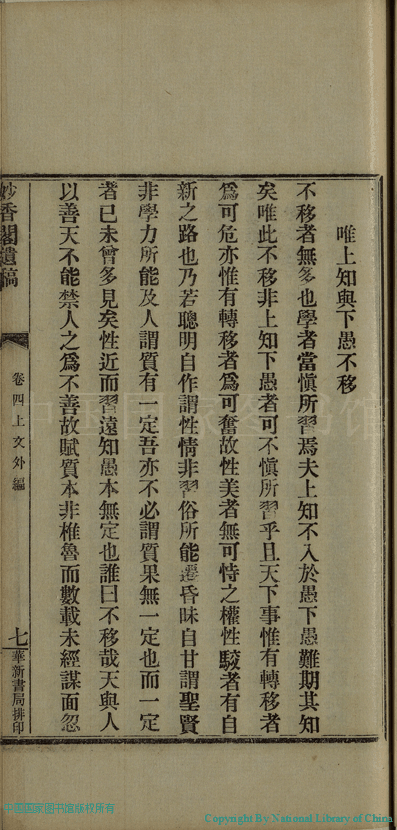 唯上知與下愚不移
不移者無多也學者當愼所習焉夫上知不入於愚下愚難期其知
矣唯此不移非上知下愚者可不愼所習乎且天下事惟有轉移者
爲可危亦惟有轉移者爲可奮故性美者無可恃之權性駿者有自
新之路也乃若聰明自作謂性情非習俗所能遷昏昧自甘謂聖賢
非學力所能及人謂質有一定吾亦不必謂質果無一定也而一定
者已未曾多見矣性近而習遠知愚本無定也誰曰不移哉天與人
以善天不能禁人之爲不善故賦質本非椎魯而數載未經謀面忽
妙香閣遺稿
卷四上文外編
七
華新書局排印
中国国家图书馆版权所有
Copyright By National Library of China